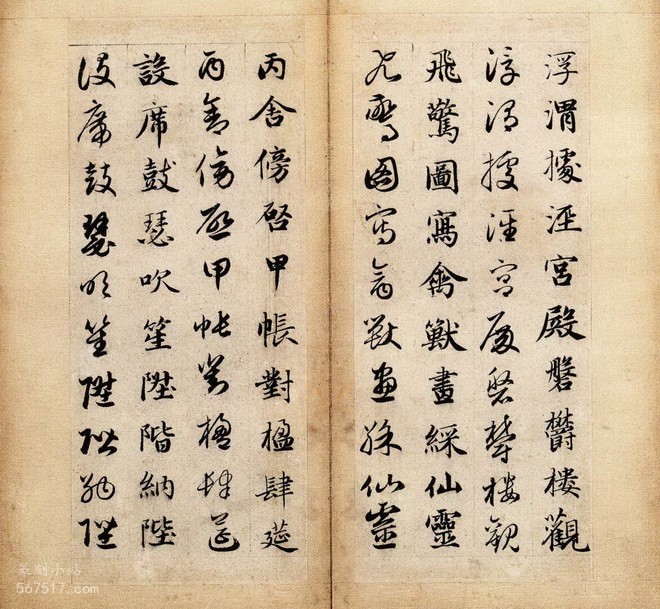 浮渭據涇宮殿磐欝樓觀
浮渭據涇宮殿磐欝樓觀
飛驚圖寫禽獸畫綵仙靈
飛驚圖寫禽獸畫綵仙靈
丙舍傍啓甲帳對楹肆筵
丙舍傍啓甲帳對楹肆筵
設席鼓瑟吹笙陞階納陛
設席鼓瑟吹笙陞階納陛
篆刻小站
567517.com